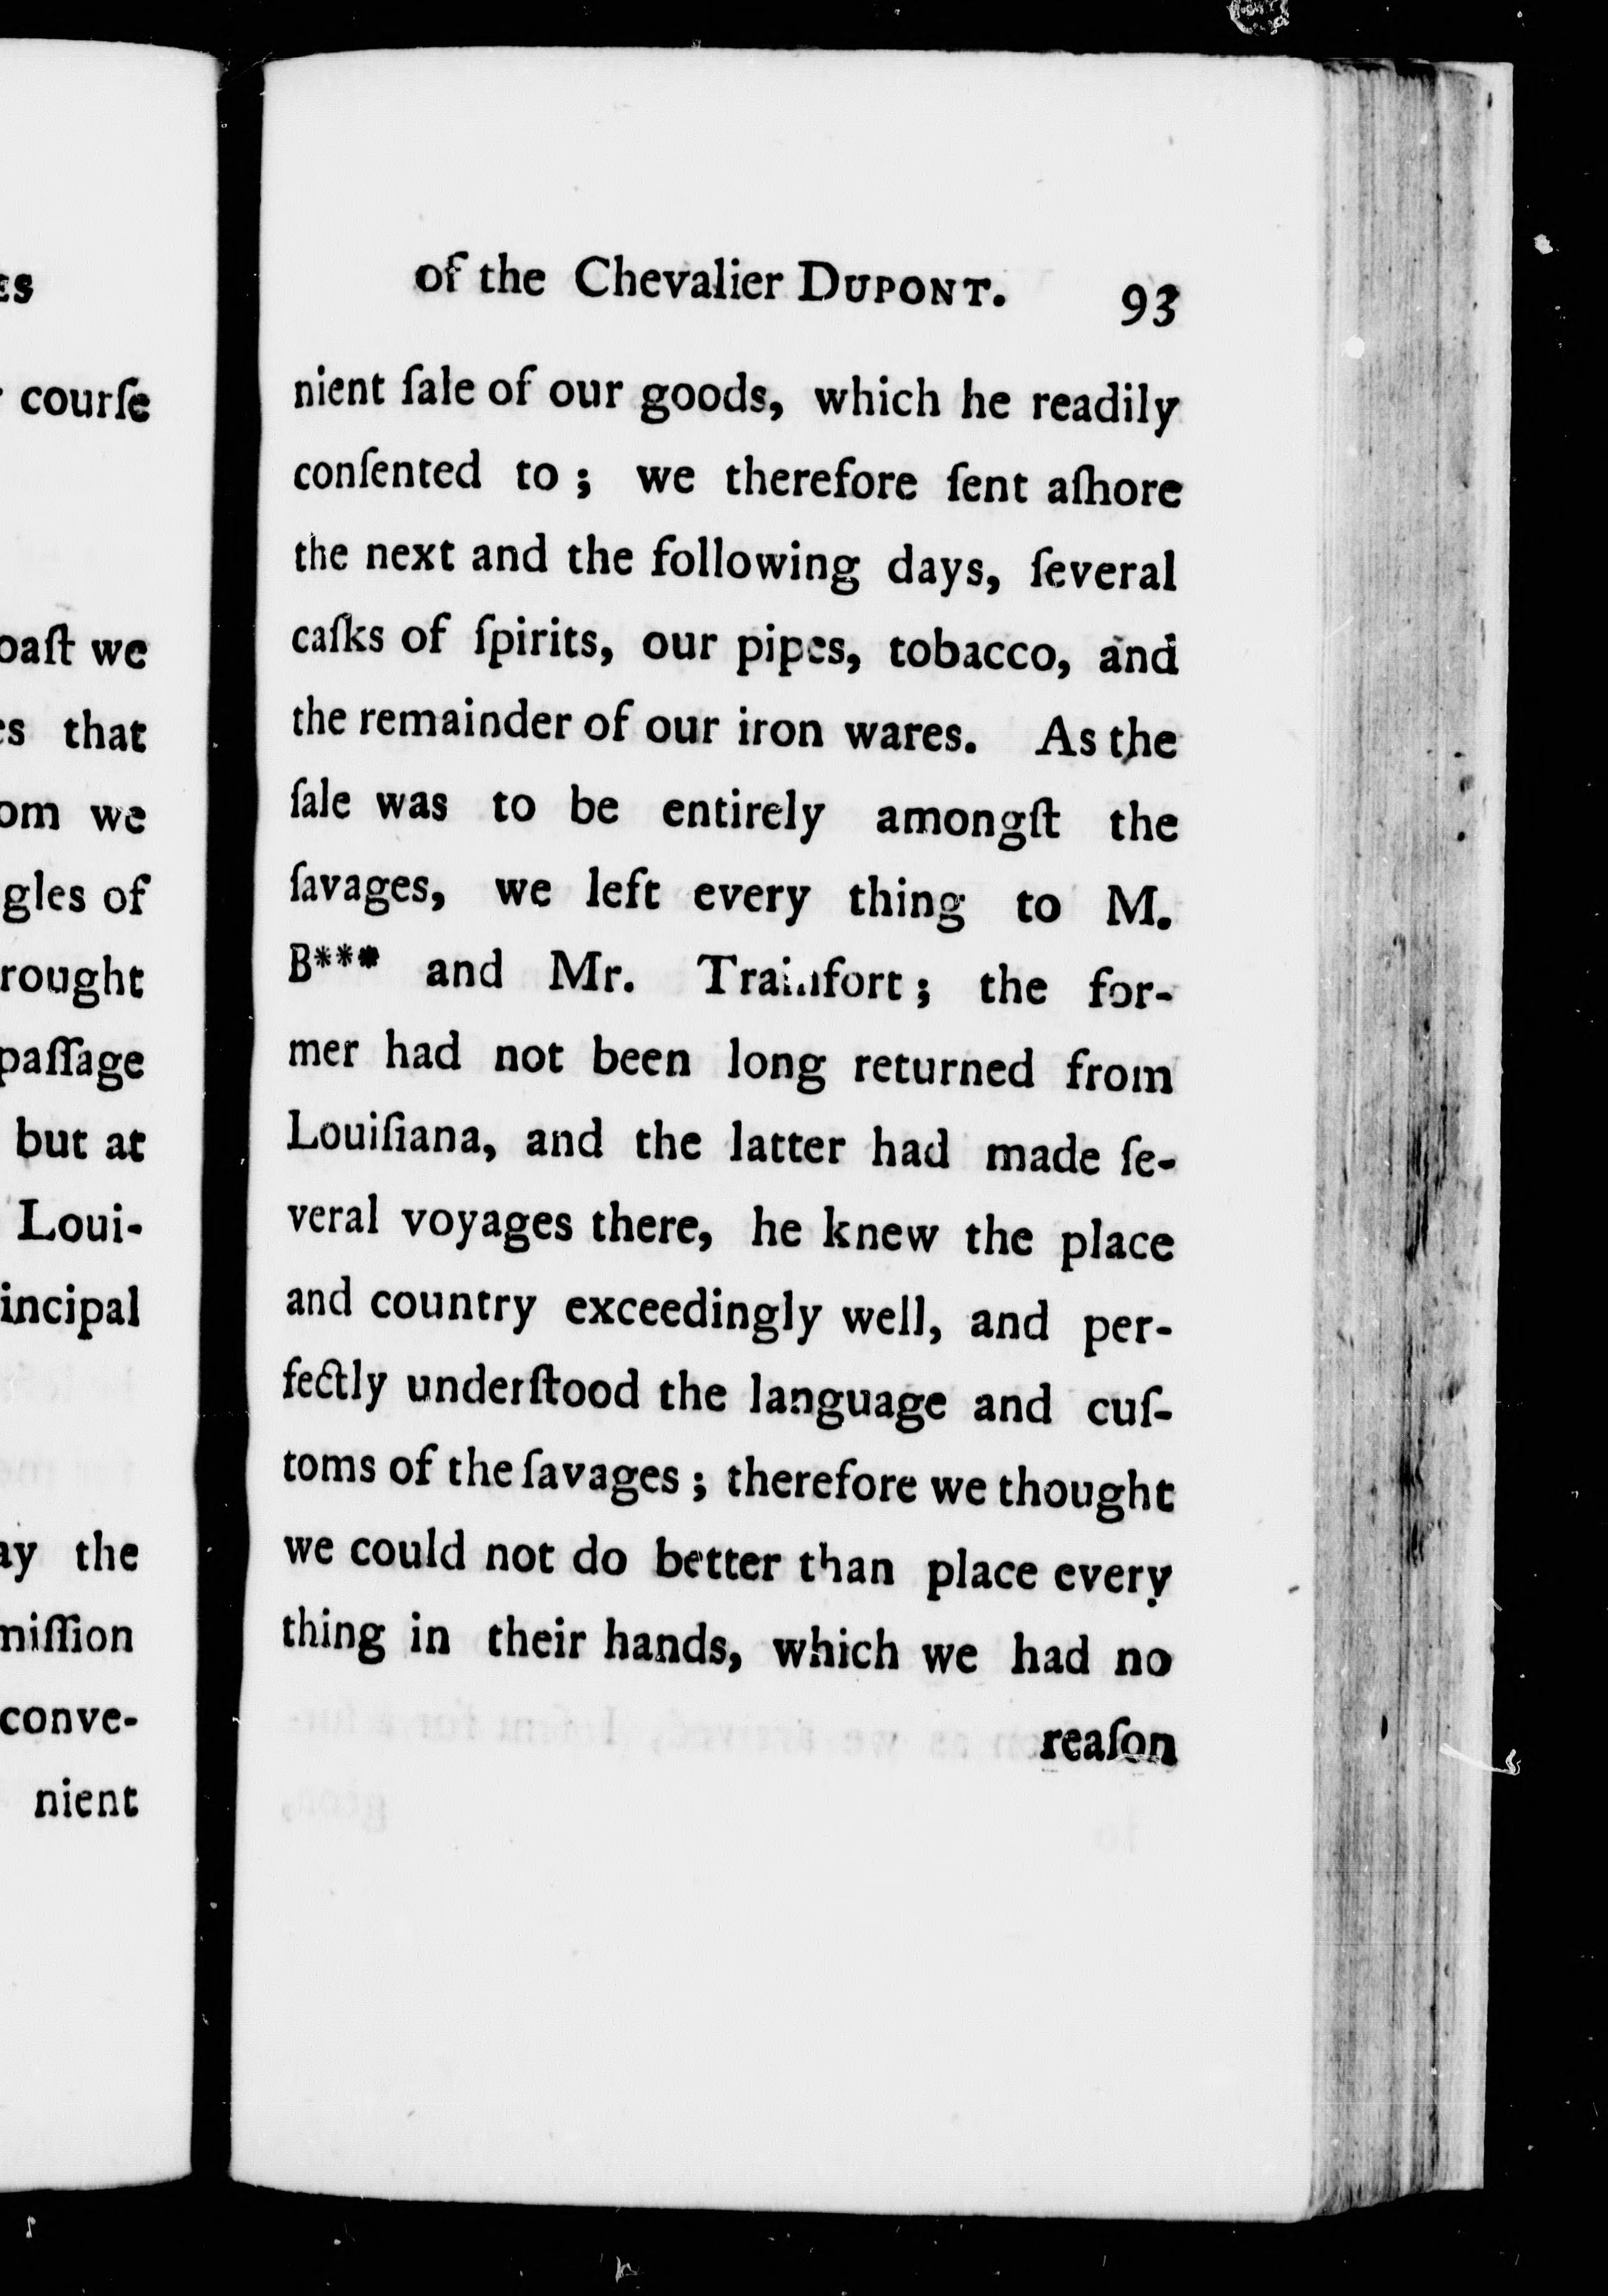 ES
courſe
we
that
we
of
but at
Loui-
the
conve-
nient
of the Chevalier DUPONT. 93
nient ſale of our goods, which he readily
conſented to; we therefore ſent aſhore
the next and the following days, ſeveral
caſks of ſpirits, our pipes, tobacco, and
the remainder of our iron wares. As the
ſale was to be entirely amongſt the
ſavages, we left every thing to M.
B*** and Mr. Trainfort; the for-
mer had not been long returned from
Louiſiana, and the latter had made ſe-
veral voyages there, he knew the place
and country exceedingly well, and per-
fectly underſtood the language and cuſ-
toms of the ſavages; therefore we thought
we could not do better than place every
thing in their hands, which we had no
reaſon